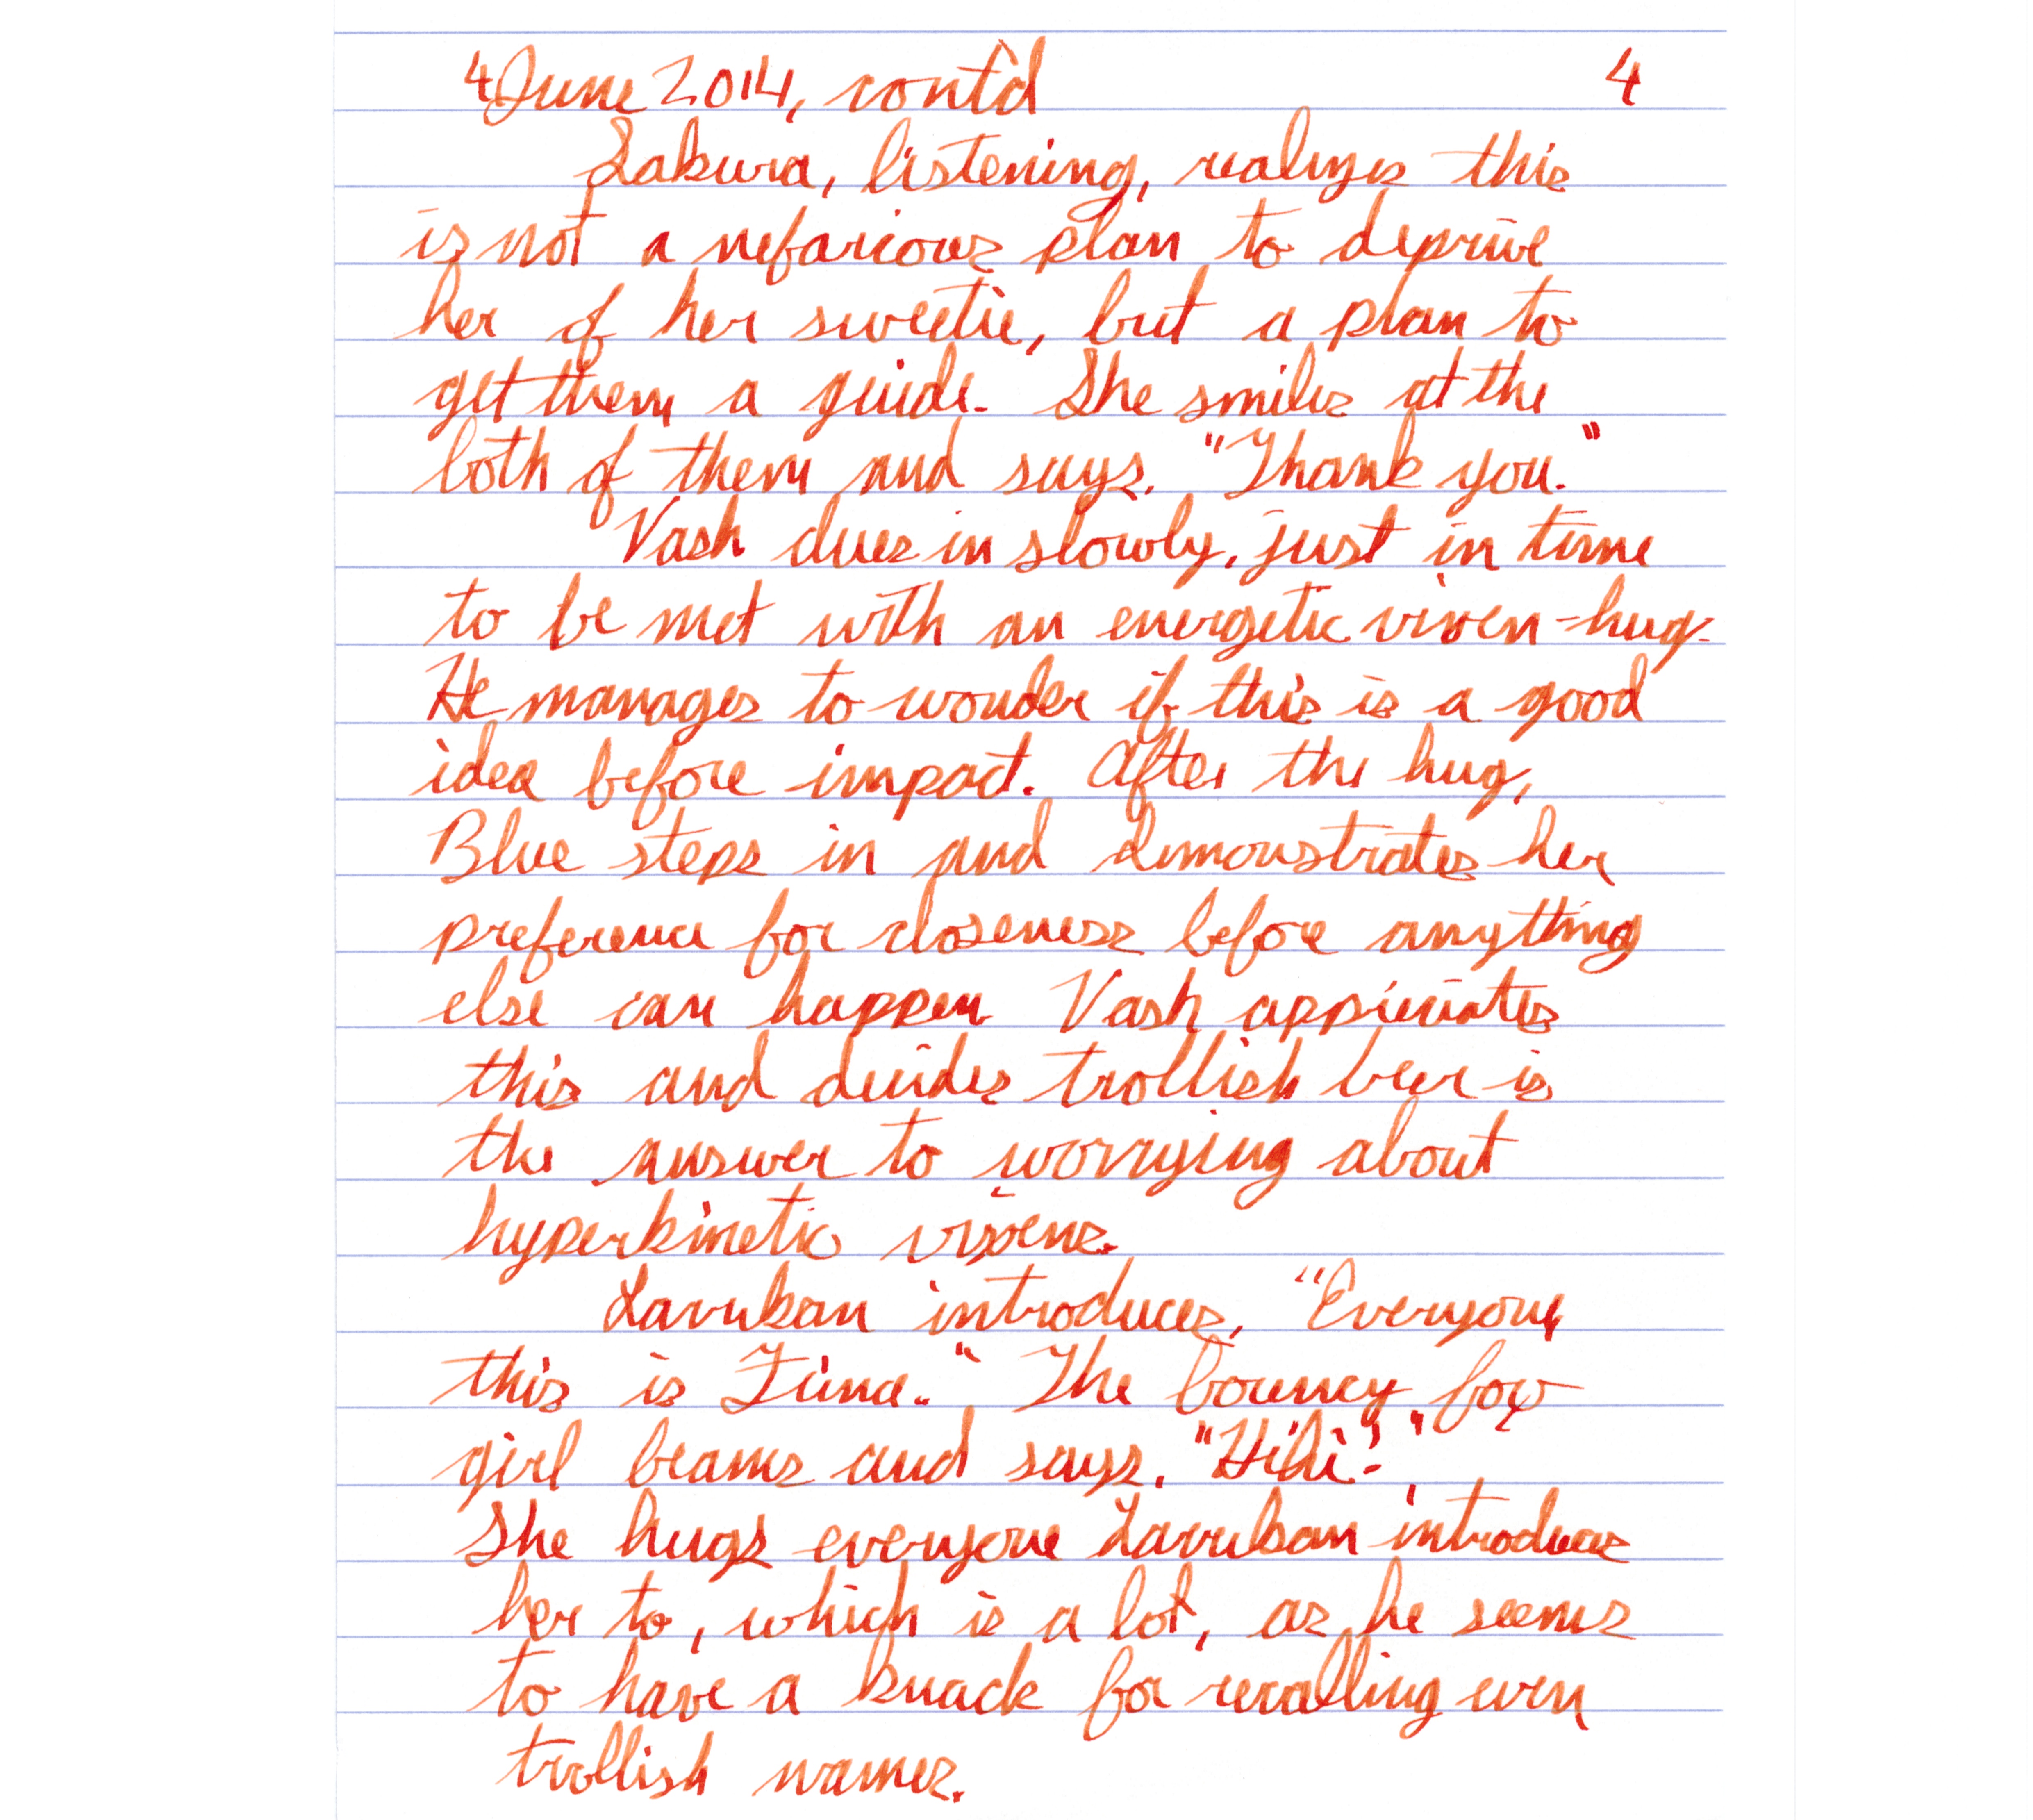 4 June 2014, cont'd 4
Sakura, listening, realizes this
is not a nefarious plan to deprive
her of her sweetie, but a plan to
get them a guide. She smiles at the
both of them and says, "Thank you."
Vash dives in slowly, just in time
to be met with an energetic vixen-hug.
He manages to wonder if this is a good
idea before impact. After the hug,
Blue steps in and demonstrates her
preference for closeness before anything
else can happen. Vash appreciates
this and decides trollish beer is
the answer to worrying about
hyperkinetic vixens.
introduces, "Everyone,
this is The bouncy fox
girl beams and says, "Hihi!"
She hugs everyone introduces
her to, which is a lot, as he seems
to have a knack for recalling even
trollish names.